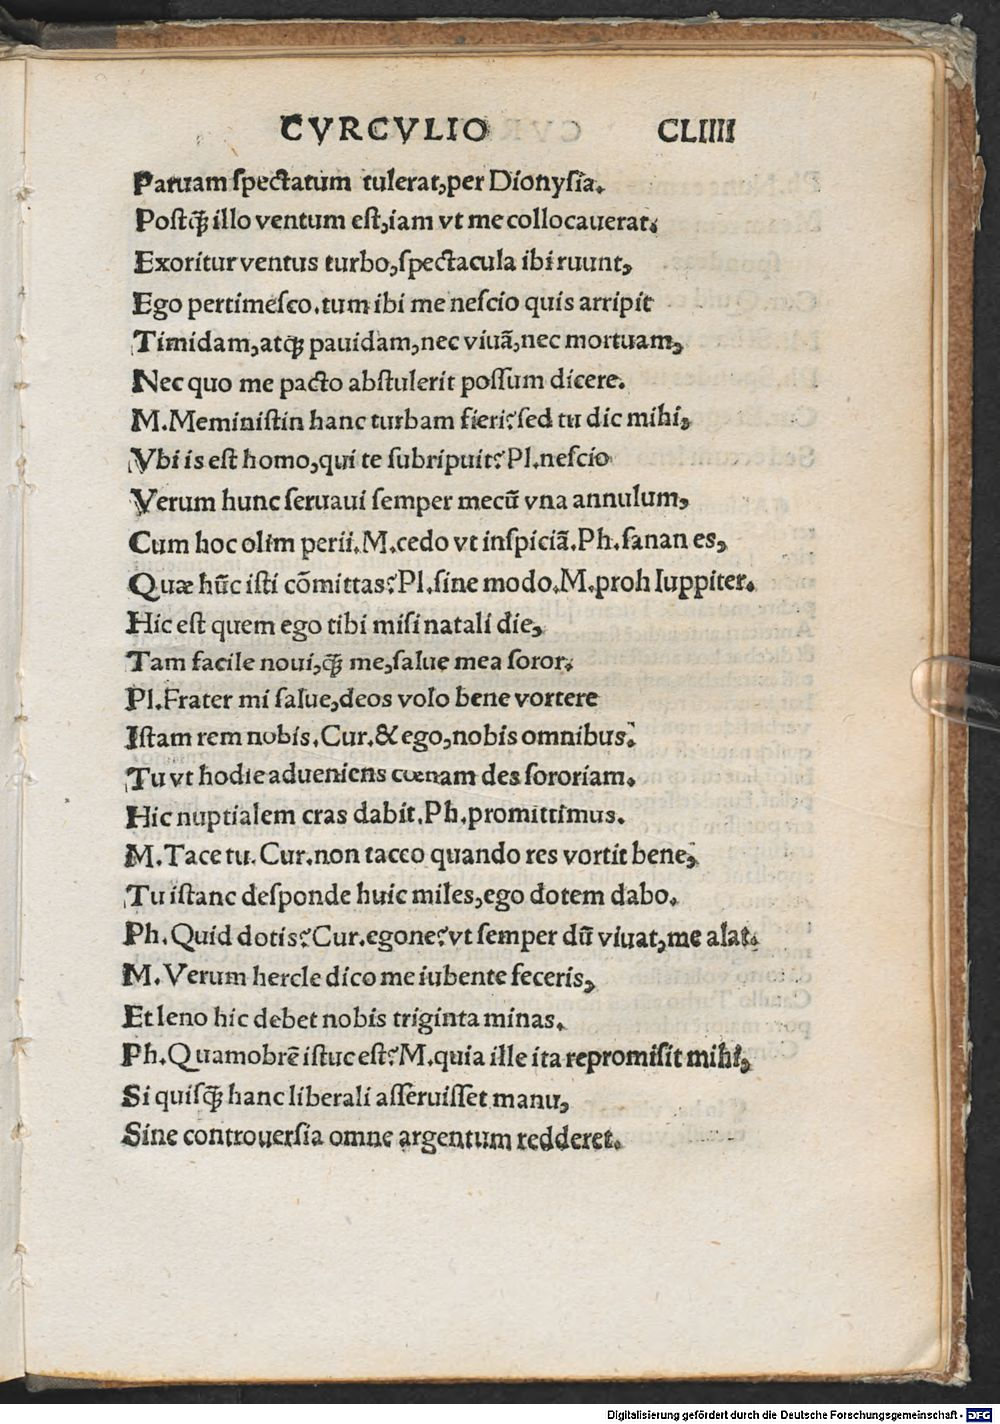 CVRCVLIO CLIIII
Paruam spectatum tulerat, per Dionysia.
Postꝙ̃ illo ventum est, iam vt me collocauerat.
Exoritur ventus turbo, spectacula ibi ruunt,
Ego pertimesco. tum ibi me nescio quis arripit
Timidam, atqꝫ pauidam, nec viuã, nec mortuam,
Nec quo me pacto abstulerit possum dicere.
M. Meministin hanc turbam fieri? sed tu dic mihi,
Vbi is est homo, qui te subripuit? Pl. nescio
Verum hunc seruaui semper mecũ vna annulum,
Cum hoc olim perii. M. cedo vt inspiciã. Ph. sanan es,
Quæ hũc isti cõmittas? Pl. sine modo. M. proh Iuppiter.
Hic est quem ego tibi misi natali die,
Tam facile noui, ꝙ̃ me, salue mea soror.
Pl. Frater mi salue, deos volo bene vortere
Istam rem nobis. Cur. & ego, nobis omnibus.
Tu vt hodie adueniens cœnam des sororiam.
Hic nuptialem cras dabit. Ph. promittimus.
M. Tace tu. Cur. non taceo quando res vortit bene,
Tu istanc desponde huic miles, ego dotem dabo.
Ph. Quid dotis? Cur. egone? vt semper dũ viuat, me alat.
M. Verum hercle dico me iubente feceris,
Et leno hic debet nobis triginta minas.
Ph. Quamobrẽ istuc est? M. quia ille ita repromisit mihi,
Si quisꝙ̃ hanc liberali asseruisset manu,
Sine controuersia omne argentum redderet.
Digitalisierung gefördert durch die Deutsche Forschungsgemeinschaft - DFG